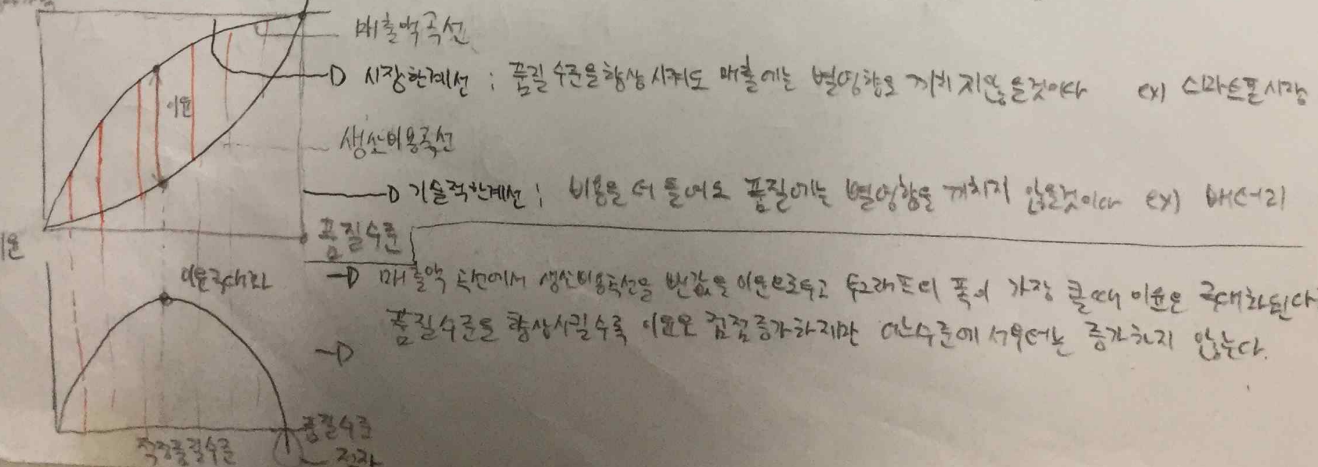 매출액곡선
시장한계선 : 품질 수준을 향상 시켜도 매출에는 별영향을 끼치지않을것이다 ex) 스마트폰시장
이윤
생산비용곡선
기술적한계선 ; 비용을 더 들여도 품질에는 별영향을 끼치지 않을것이다 ex) 배터리
품질수준
이윤
이윤극대화
매출액 곡선에서 생산비용곡선을 뺀값을 이윤으로두고 두그래프의 폭이 가장 클때 이윤은 극대화된다
품질수준을 향상시킬수록 이윤은 점점증가하지만 어느수준에서부터는 증가하지 않는다.
품질수준
적정품질수준
적자